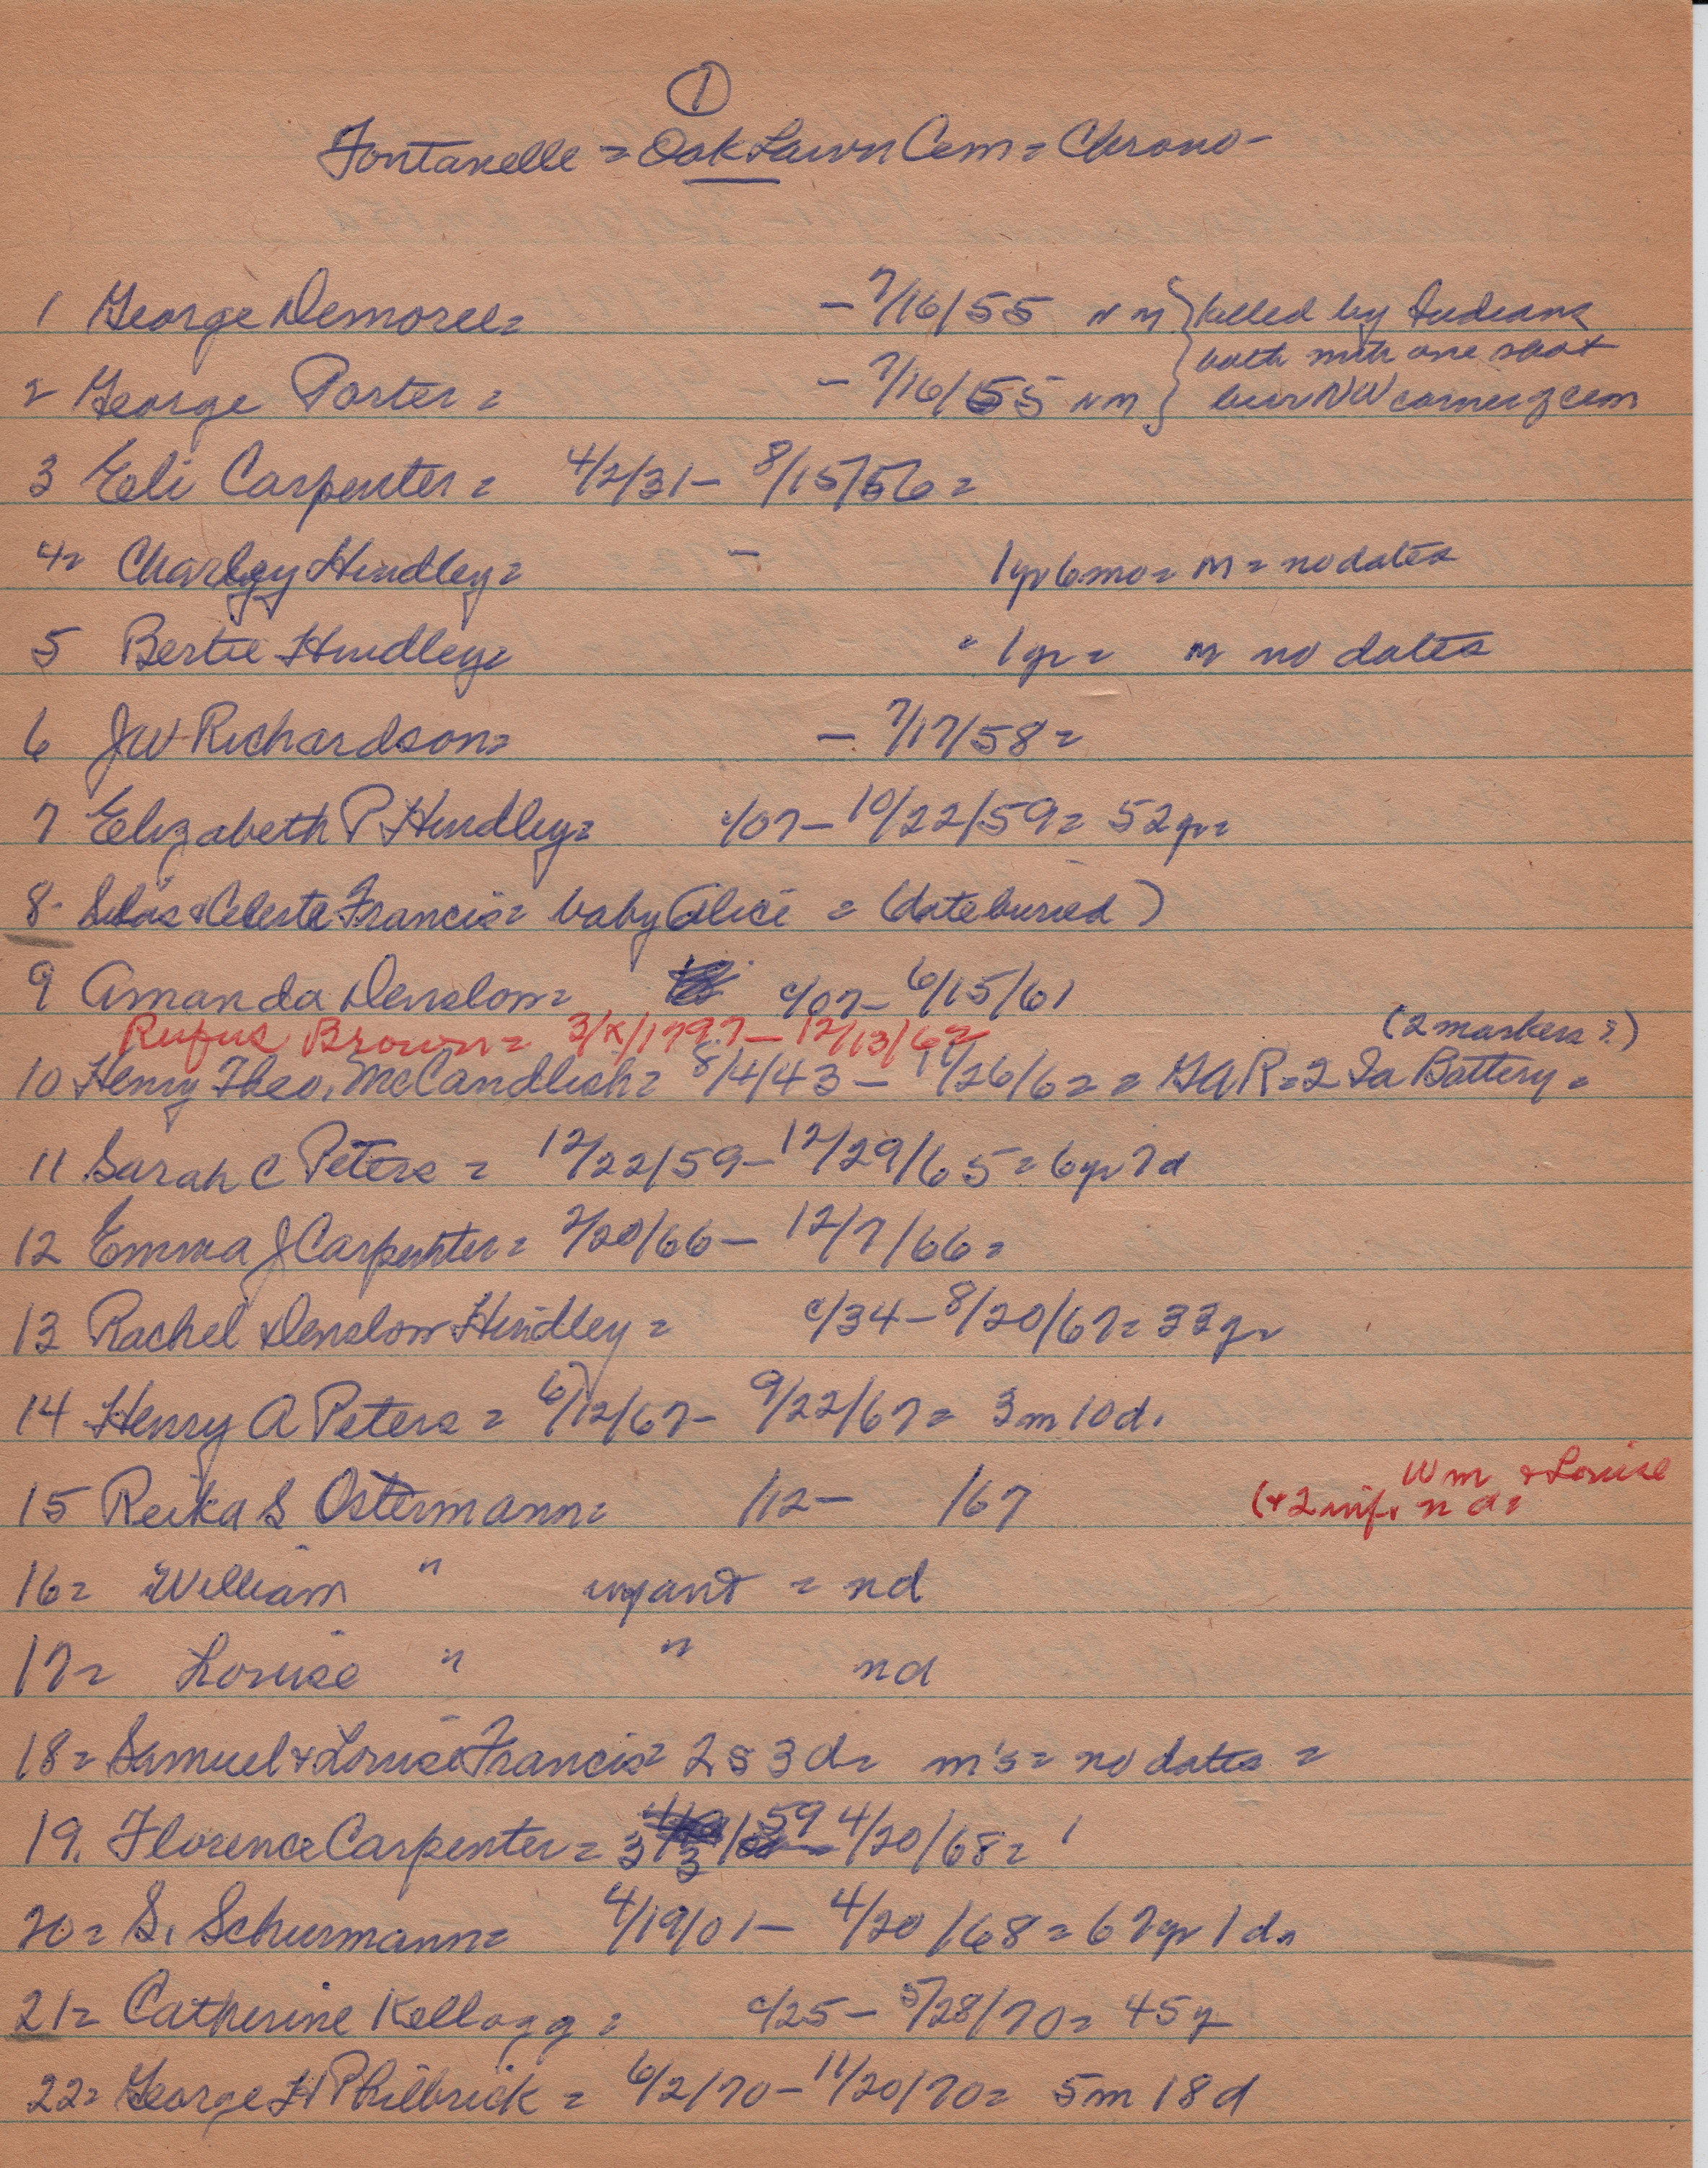 1
Fontanelle = Oak Lawn Cem = Chrono-
1 George Demoree = - 7/16/55 NM } killed by Indians
both with one shot
2 George Porter = - 7/16/55 NM } bur NW corner of cem
3 Eli Carpenter = 4/2/31 - 8/15/56 =
4 = Charley Hindley = - 1 yr 6 mo = M = no dates
5 Bertie Hindley = " 1 yr = M no dates
6 JW Richardson = - 7/17/58 =
7 Elizabeth P Hindley = c/07 - 10/22/59 = 52 yr =
8 - Silas & Celesta Francis = baby Alice = (date buried)
9 Amanda Denslow = c/07 - 6/15/61
Rufus Brown = 3/x/1797 - 12/13/62
(2 markers?)
10 Henry Theo. McCandlish = 8/4/43 - 11/26/62 = GAR = 2 Ia Battery =
11 Sarah C Peters = 12/22/59 - 12/29/65 = 6 yr 7 d
12 Emma J Carpenter = 2/20/66 - 12/7/66 =
13 Rachel Denslow Hindley = c/34 - 8/20/67 = 33 yr
14 Henry A Peters = 6/12/67 - 9/22/67 = 3 m 10 d.
Wm & Louise
15 Reika S Ostermann = /12 - /67 (+2 inf. n d =
16 = William " infant = nd
17 = Louise " " nd
18 = Samuel & Louise Francis = 2 s 3 d = m's = no dates =
19. Florence Carpenter = 3/3/59 - 4/20/68 =
20 = S. Schurmann = 4/19/01 - 4/20/68 = 67 yr 1 d.
21 = Catherine Kellogg = c/25 - 5/28/70 = 45 y
22 = George H Philbrick = 6/2/70 - 11/20/70 = 5 m 18 d